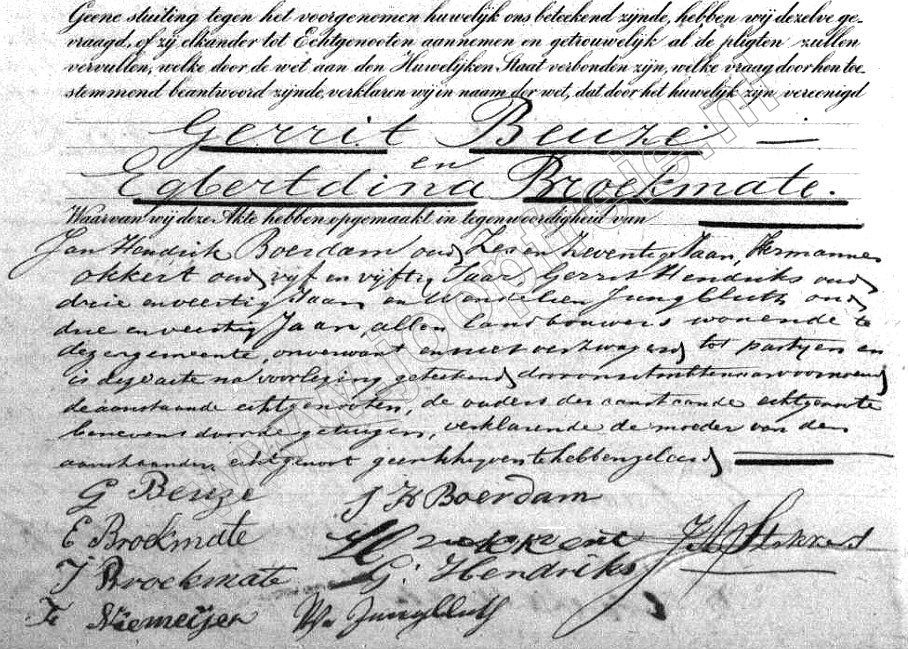 Geene stuiting tegen het voorgenomen huwelijk ons beteekend zijnde, hebben wij dezelve ge-
vraagd, of zij elkander tot Echtgenooten aannemen en getrouwelijk al de pligten zullen
vervullen, welke door de wet aan den Huwelijken Staat verbonden zijn, welke vraag door hen toe-
stemmend beantwoord zijnde, verklaren wij in naam der wet, dat door het huwelijk zijn vereenigd
Gerrit Beuze —
en
Egbertdina Broekmate.
Waarvan wij deze Akte hebben opgemaakt in tegenwoordigheid van
Jan Hendrik Boerdam oud Zes en Zeventig Jaar, Hermannes
Okkert oud vijf en vijftig Jaar Gerrit Hendriks oud
drie en veertig Jaar en Wendelien Jungbluth oud
drie en veertig Jaar, allen Landbouwers wonende te
dezer gemeente, onverwant en niet verzwagerd tot partijen en
is deze acte na voorlezing geteekend door ons
de aanstaande echtgenooten, de ouders der aanstaande echtgenoote
benevens door de getuigen, verklarende de moeder van den
aanstaanden echtgenoot geen schrijven te hebben geleerd
G Beuze
J H Boerdam
E Broekmate
H Okkert
J Broekmate
G. Hendriks
Niemeijer
W. Jungbluth
www.jooptireis.nl